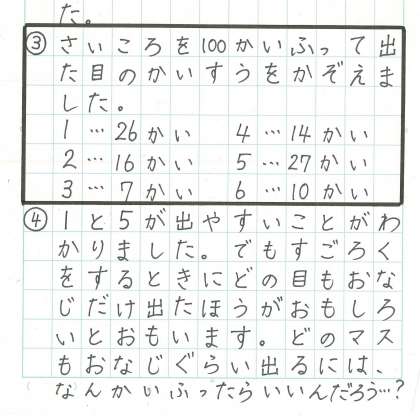 た。
③さいころを100かいふって出
た目のかいすうをかぞえま
した。
1…26かい 4…14かい
2…16かい 5…27かい
3…7かい 6…10かい
④1と5が出やすいことがわ
かりました。でもすごろく
をするときにどの目もおな
じだけ出たほうがおもしろ
いとおもいます。どのマス
もおなじぐらい出るには、
なんかいふったらいいんだろう…?